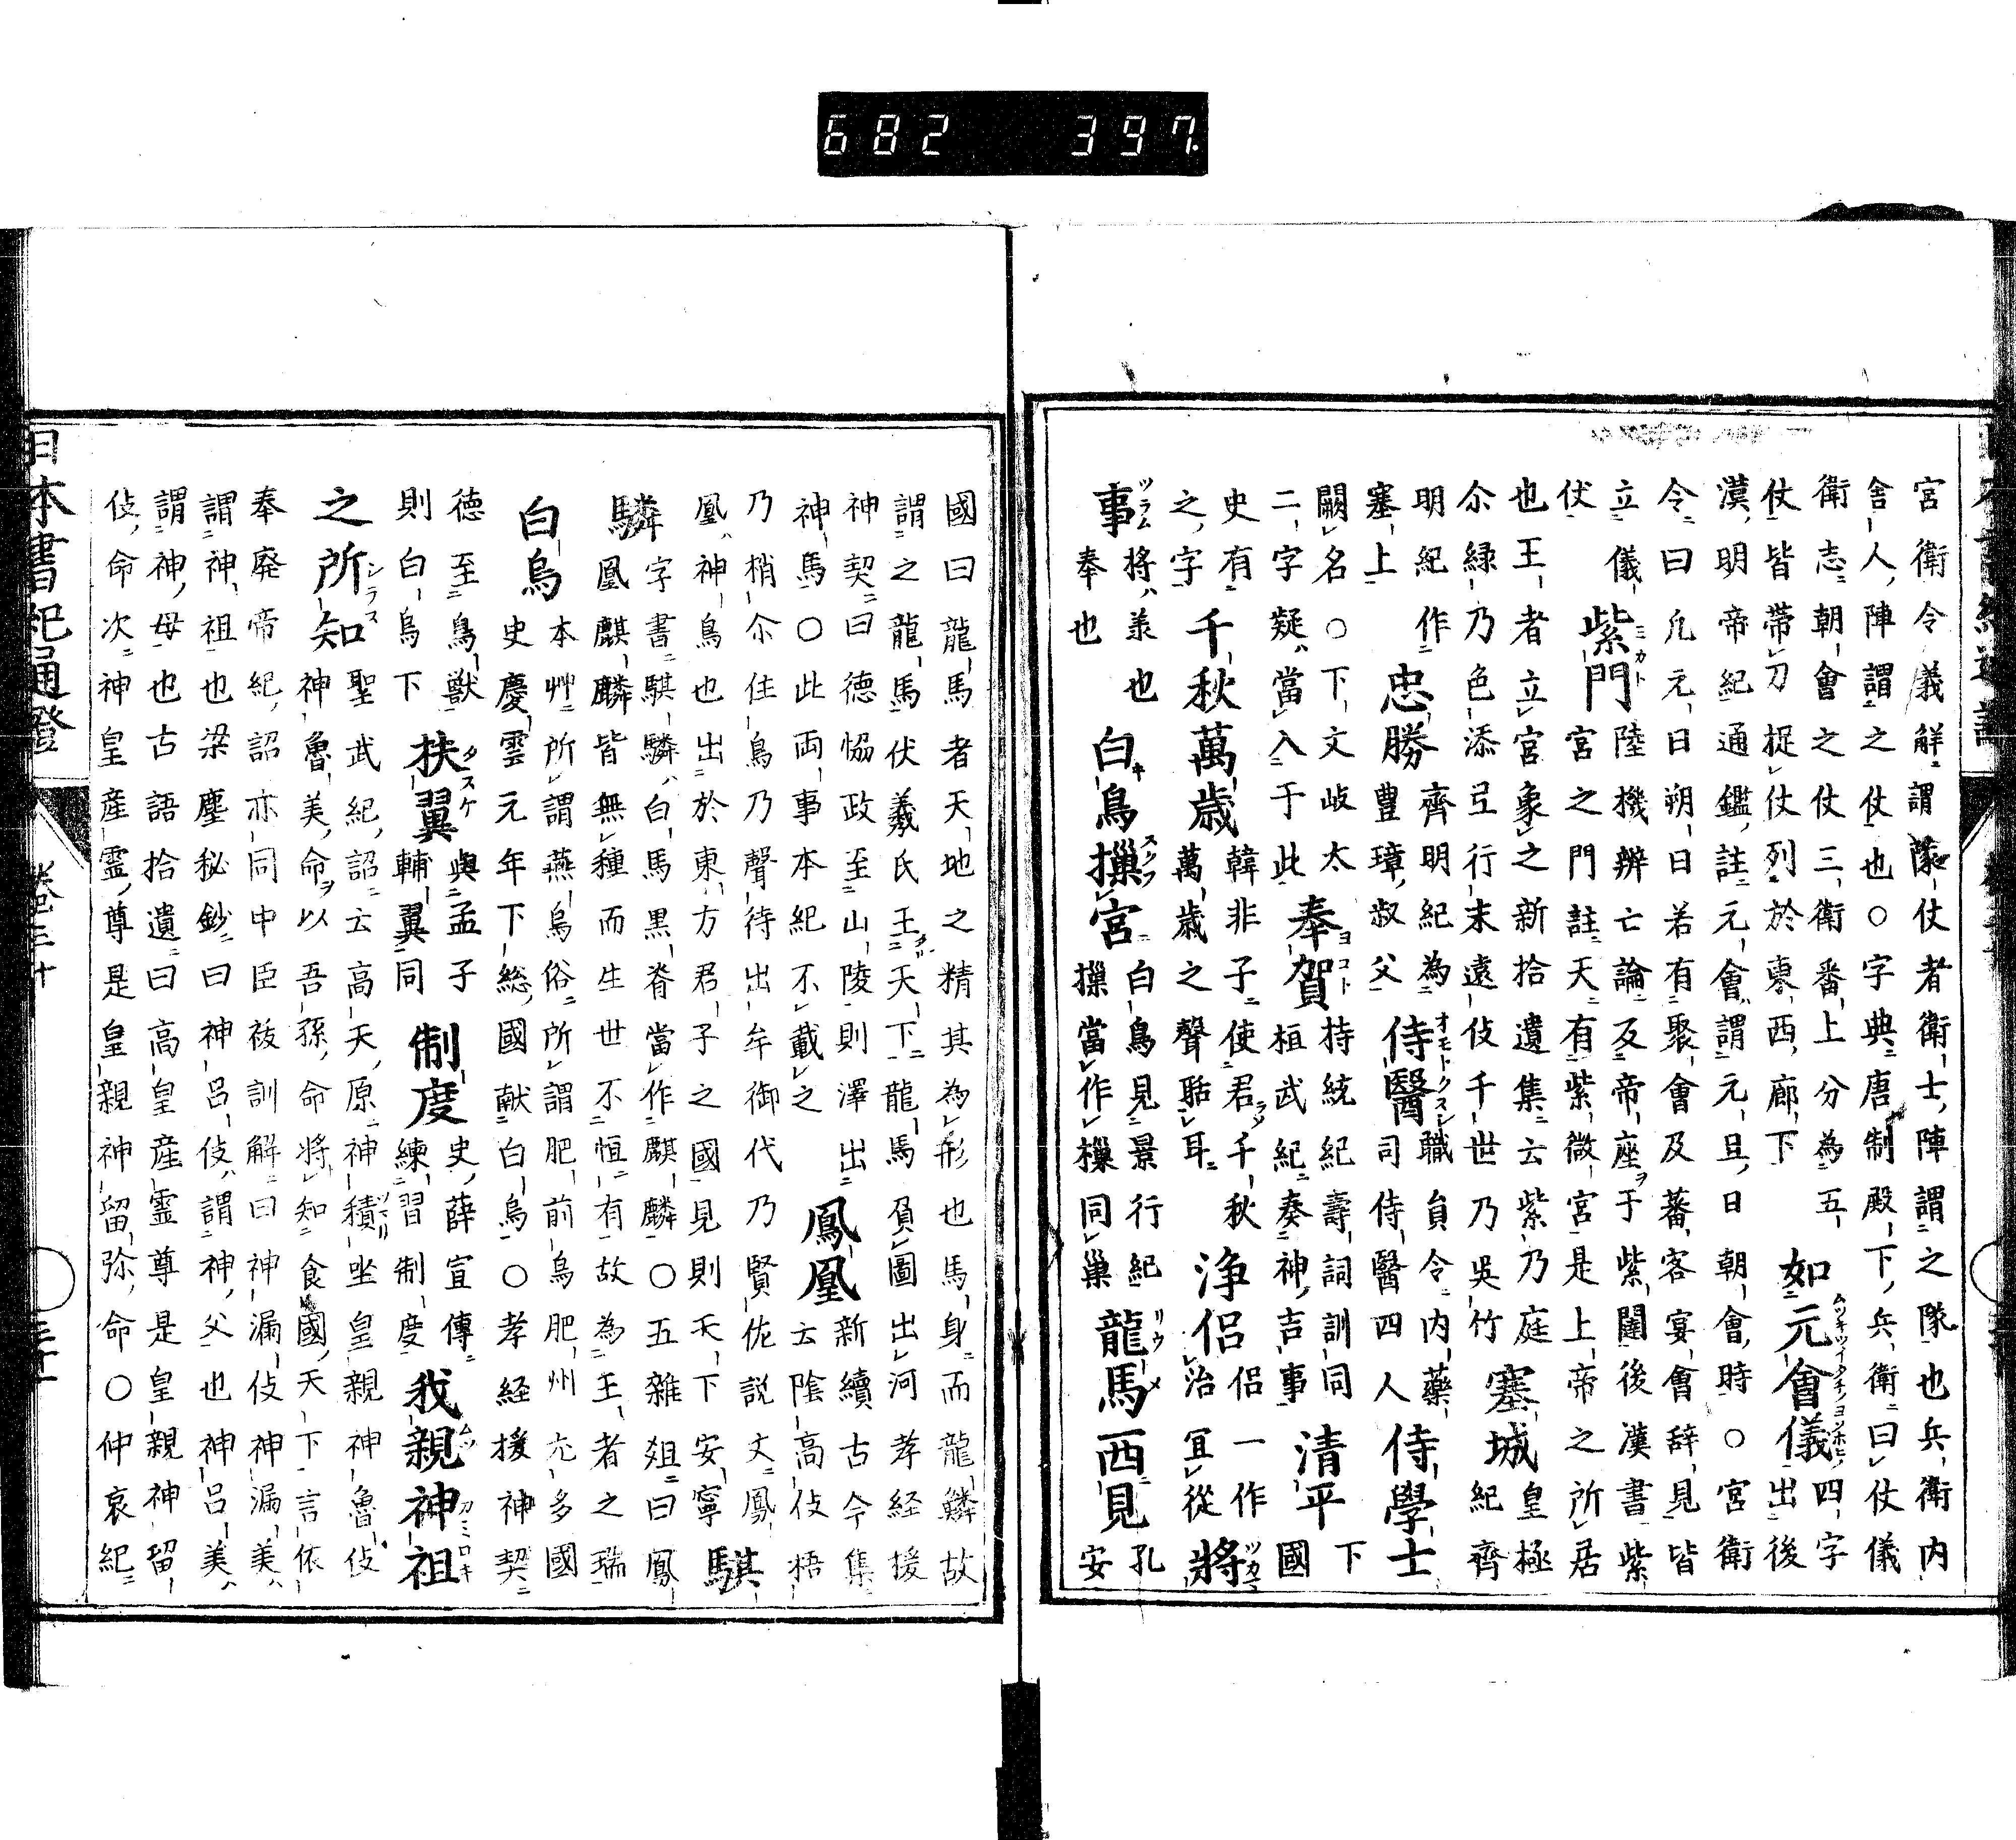 682 397
宮衛令義解謂隊仗者衛士陣謂之隊也兵衛内
舎人陣謂之仗也○字典唐制殿下兵衛曰仗儀
衛志朝會之仗三衛番上分為五 如元會儀 四字
仗皆帯刀捉仗列於東西廊下 出後
漢明帝紀通鑑註元會謂元旦日朝會時○宮衛
令曰凢元日朔日若有聚會及蕃客宴會辞見皆
立儀 紫門 陸機辨亡論反帝座于紫闥後漢書紫
伏 宮之門註天有紫微宮是上帝之所居
也王者立宮象之新拾遺集云紫乃庭 塞城 皇極
尒緑乃色添弖行末遠伎千世乃吳竹 紀齊
明紀作 忠勝 齊明紀為 侍醫 職員令内薬 侍學士
塞上 豊璋叔父 司侍醫四人
闕名○下文岐太 奉賀 持統紀壽詞訓同 清平 下
二字疑當入于此 桓武紀奏神吉事 國
史有 千秋萬歳 韓非子使君千秋 浄侶 侶一作 將
之字 萬歳之聲聒耳 治冝從
事 將羕也 白鳥巢宮 白鳥見景行紀 龍馬西見 孔
奉也 樔當作樔同巢 安
國曰龍馬者天地之精其為形也馬身而龍鱗故
謂之龍馬伏羲氏王天下龍馬負圖出河孝経援
神契曰德恊政至山陵則澤出 鳳凰 新續古今集
神馬○此両事本紀不載之 云陰高伎梧
乃梢尒住鳥乃聲待出牟御代乃賢佐説文鳳
凰神鳥也出於東方君子之國見則天下安寧 騏
驎 字書騏驎白馬黒脊當作麒麟○五雜爼曰鳳
鳳麒麟皆無種而生世不恒有故為王者之瑞
白烏 本艸所謂燕烏俗所謂肥前烏肥州尤多國
史慶雲元年下総國献白烏○孝経援神契
徳至鳥獣 扶翼 與孟子 制度 史薛宣傳 我親神祖
則白烏下 輔翼同 練習制度
之所知 聖武紀詔云高天原神積坐皇親神魯伎
神魯美命以吾孫命将知食國天下言依
奉廃帝紀詔亦同中臣祓訓解曰神漏伎神漏美
謂神祖也梁塵秘鈔曰神呂伎謂神父也神呂美
謂神母也古語拾遺曰高皇産霊尊是皇親神留
伎命次神皇産霊尊是皇親神留弥命○仲哀紀
日本書紀通證 巻三十